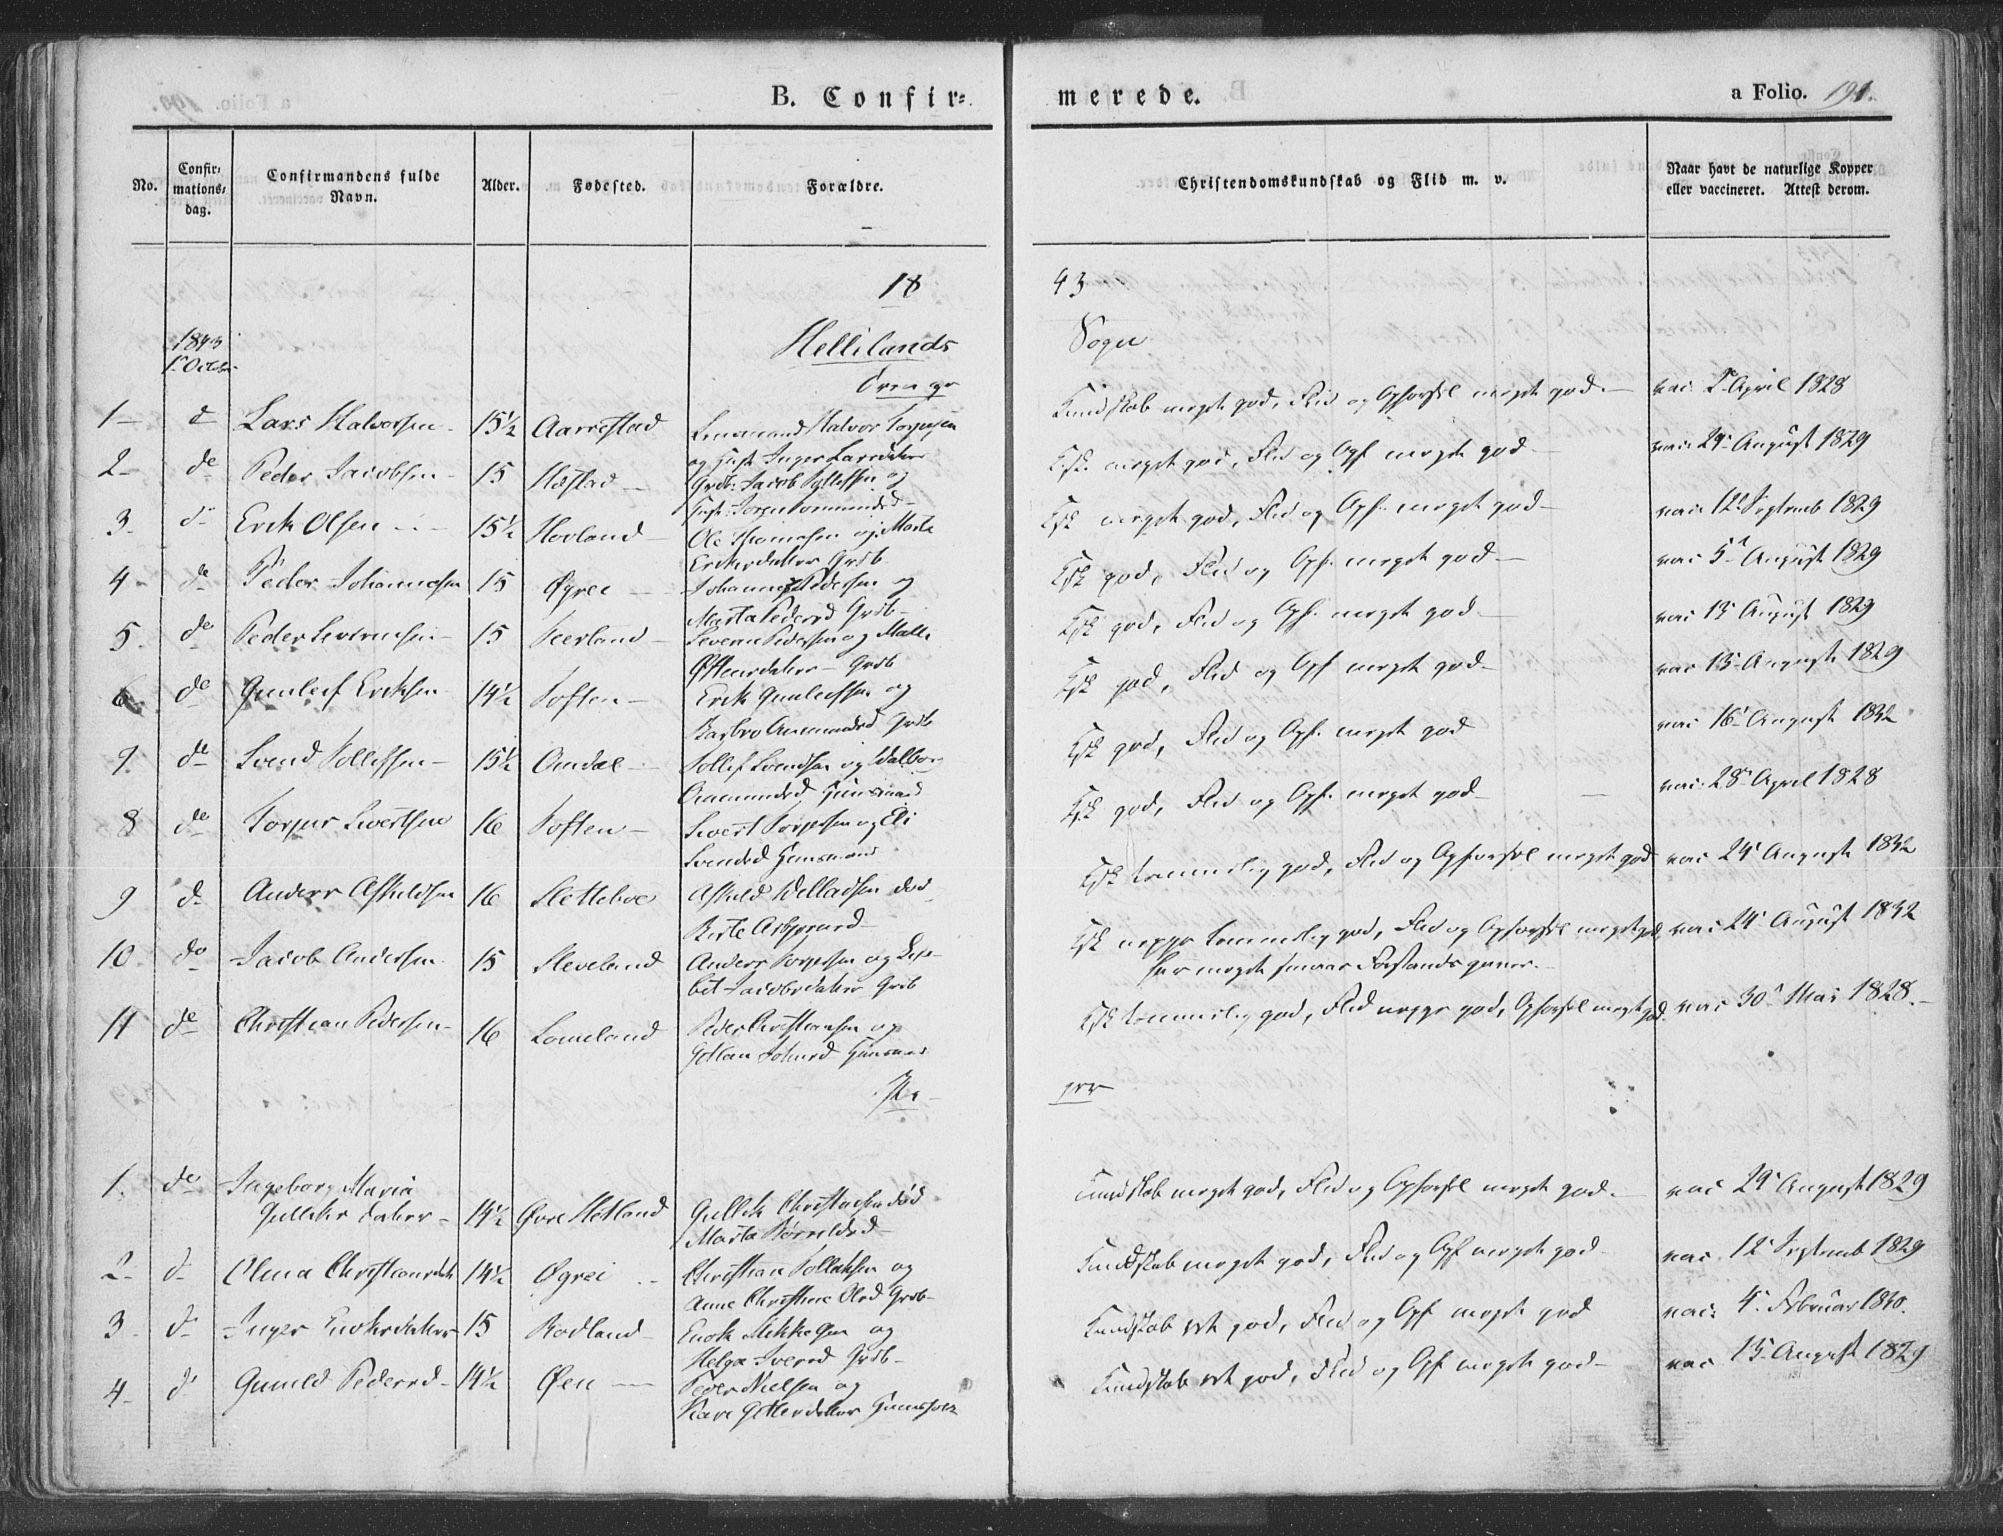 B. Confir=
merede.
a Folio. 191.
No.
Confir=
mations=
dag.
Confirmandens fulde
Navn.
Alder.
Fødested.
Forældre.
Christendomskundskab og Flid m. v.
Naar havt de naturlige Kopper
eller vaccineret. Attest derom.
18
43
1843
1 Octbr
Hellelands
Sogn
Drenge
1 d Lars Halvorsen 15½ Aarrestad Lensmand Halvor Torgersen
og Hust. Inger Larsdatter
Kundskab meget god, Flid og Opførsel meget god. vac. April 1828
2 do Peder Jacobsen 15 Hæstad Grdb. Jacob Tollefsen og
Kdsk. meget god, Flid og Opf meget god vac. 29 August 1829
3. do Erik Olsen 15½ Hovland Ole Thomasen og Marta
Eriksdatter Grdb.
Kdsk meget god, Flid og Opf. meget god vac. 12 Septemb 1829
4 do Peder Johannesen 15 Øgrei Johannes Pedersen og
Marta Pedersd Grdb
Kdsk god, Flid og Opf. meget god vac 5 August 1829
5. do Peder Severinsen 15 Teerland Severin Pedersen og Malle
Østensdatter Grdb
Kdsk god, Flid og Opf. meget god vac 15 August 1829
6 do Gunleif Eriksen 14½ Toften Erik Gunleifsen og
Barbro Aamundsd Grdb
Kdsk god, Flid og Opf meget god vac 15 August 1829
7 do Svend Tollefsen 15½ Omdal Tollef Svendsen og Valborg
Aamundsd Huusmand
Kdsk god, Flid og Opf. meget god vac 16 August 1832
8 do Torger Sivertsen 16 Toften Sivert Torgersen og Eli
Svendsd Huusmand
Kdsk god, Flid og Opf. meget god vac. 28 April 1828
9 do Anders Asbeldsen 16 Slettebøe
Kdsk temmelig god, Flid og Opførsel meget god vac 24 August 1832
10. do Jacob Andersen 15 Sleveland Anders Torgersen og Lise-
bet Jacobsdatter Grdb
Kdsk neppe temmelig god, Flid og Opførsel meget god. vac 24 August 1832
har meget svage Forstandsgaver.
11 do Christian Pedersen 16 Lomeland Peder Christiansen og
Huusmand
Kdsk temmelig god, Flid neppe god, Opførsel meget god. vac 30 Mai 1828.
Pi-
ger
1. do Ingeborg Maria
Gulliksdatter 14½ Øvre Hetland Gullik Christensen død
Kundskab meget god, Flid og Opførsel meget god. vac 29 August 1829
2. d Olena Christiansdatt 14½ Øgrei Christian Tollaksen og
Anne Christine Olsd Grdb
Kundskab meget god, Flid og Opf meget god vac. 12 Septemb 1829
3. d Inger Enoksdatter 15 Rodland Enok Mikkelsen og
Helga Iversd Grdb
Kundskab ret god, Flid og Opf meget god vac. 4 Februar 1830.
4 d Gunild Pedersd 14½ Øen Peder Nielsen og
Kundskab ret god, Flid og Opf meget god vac 15 August 1829